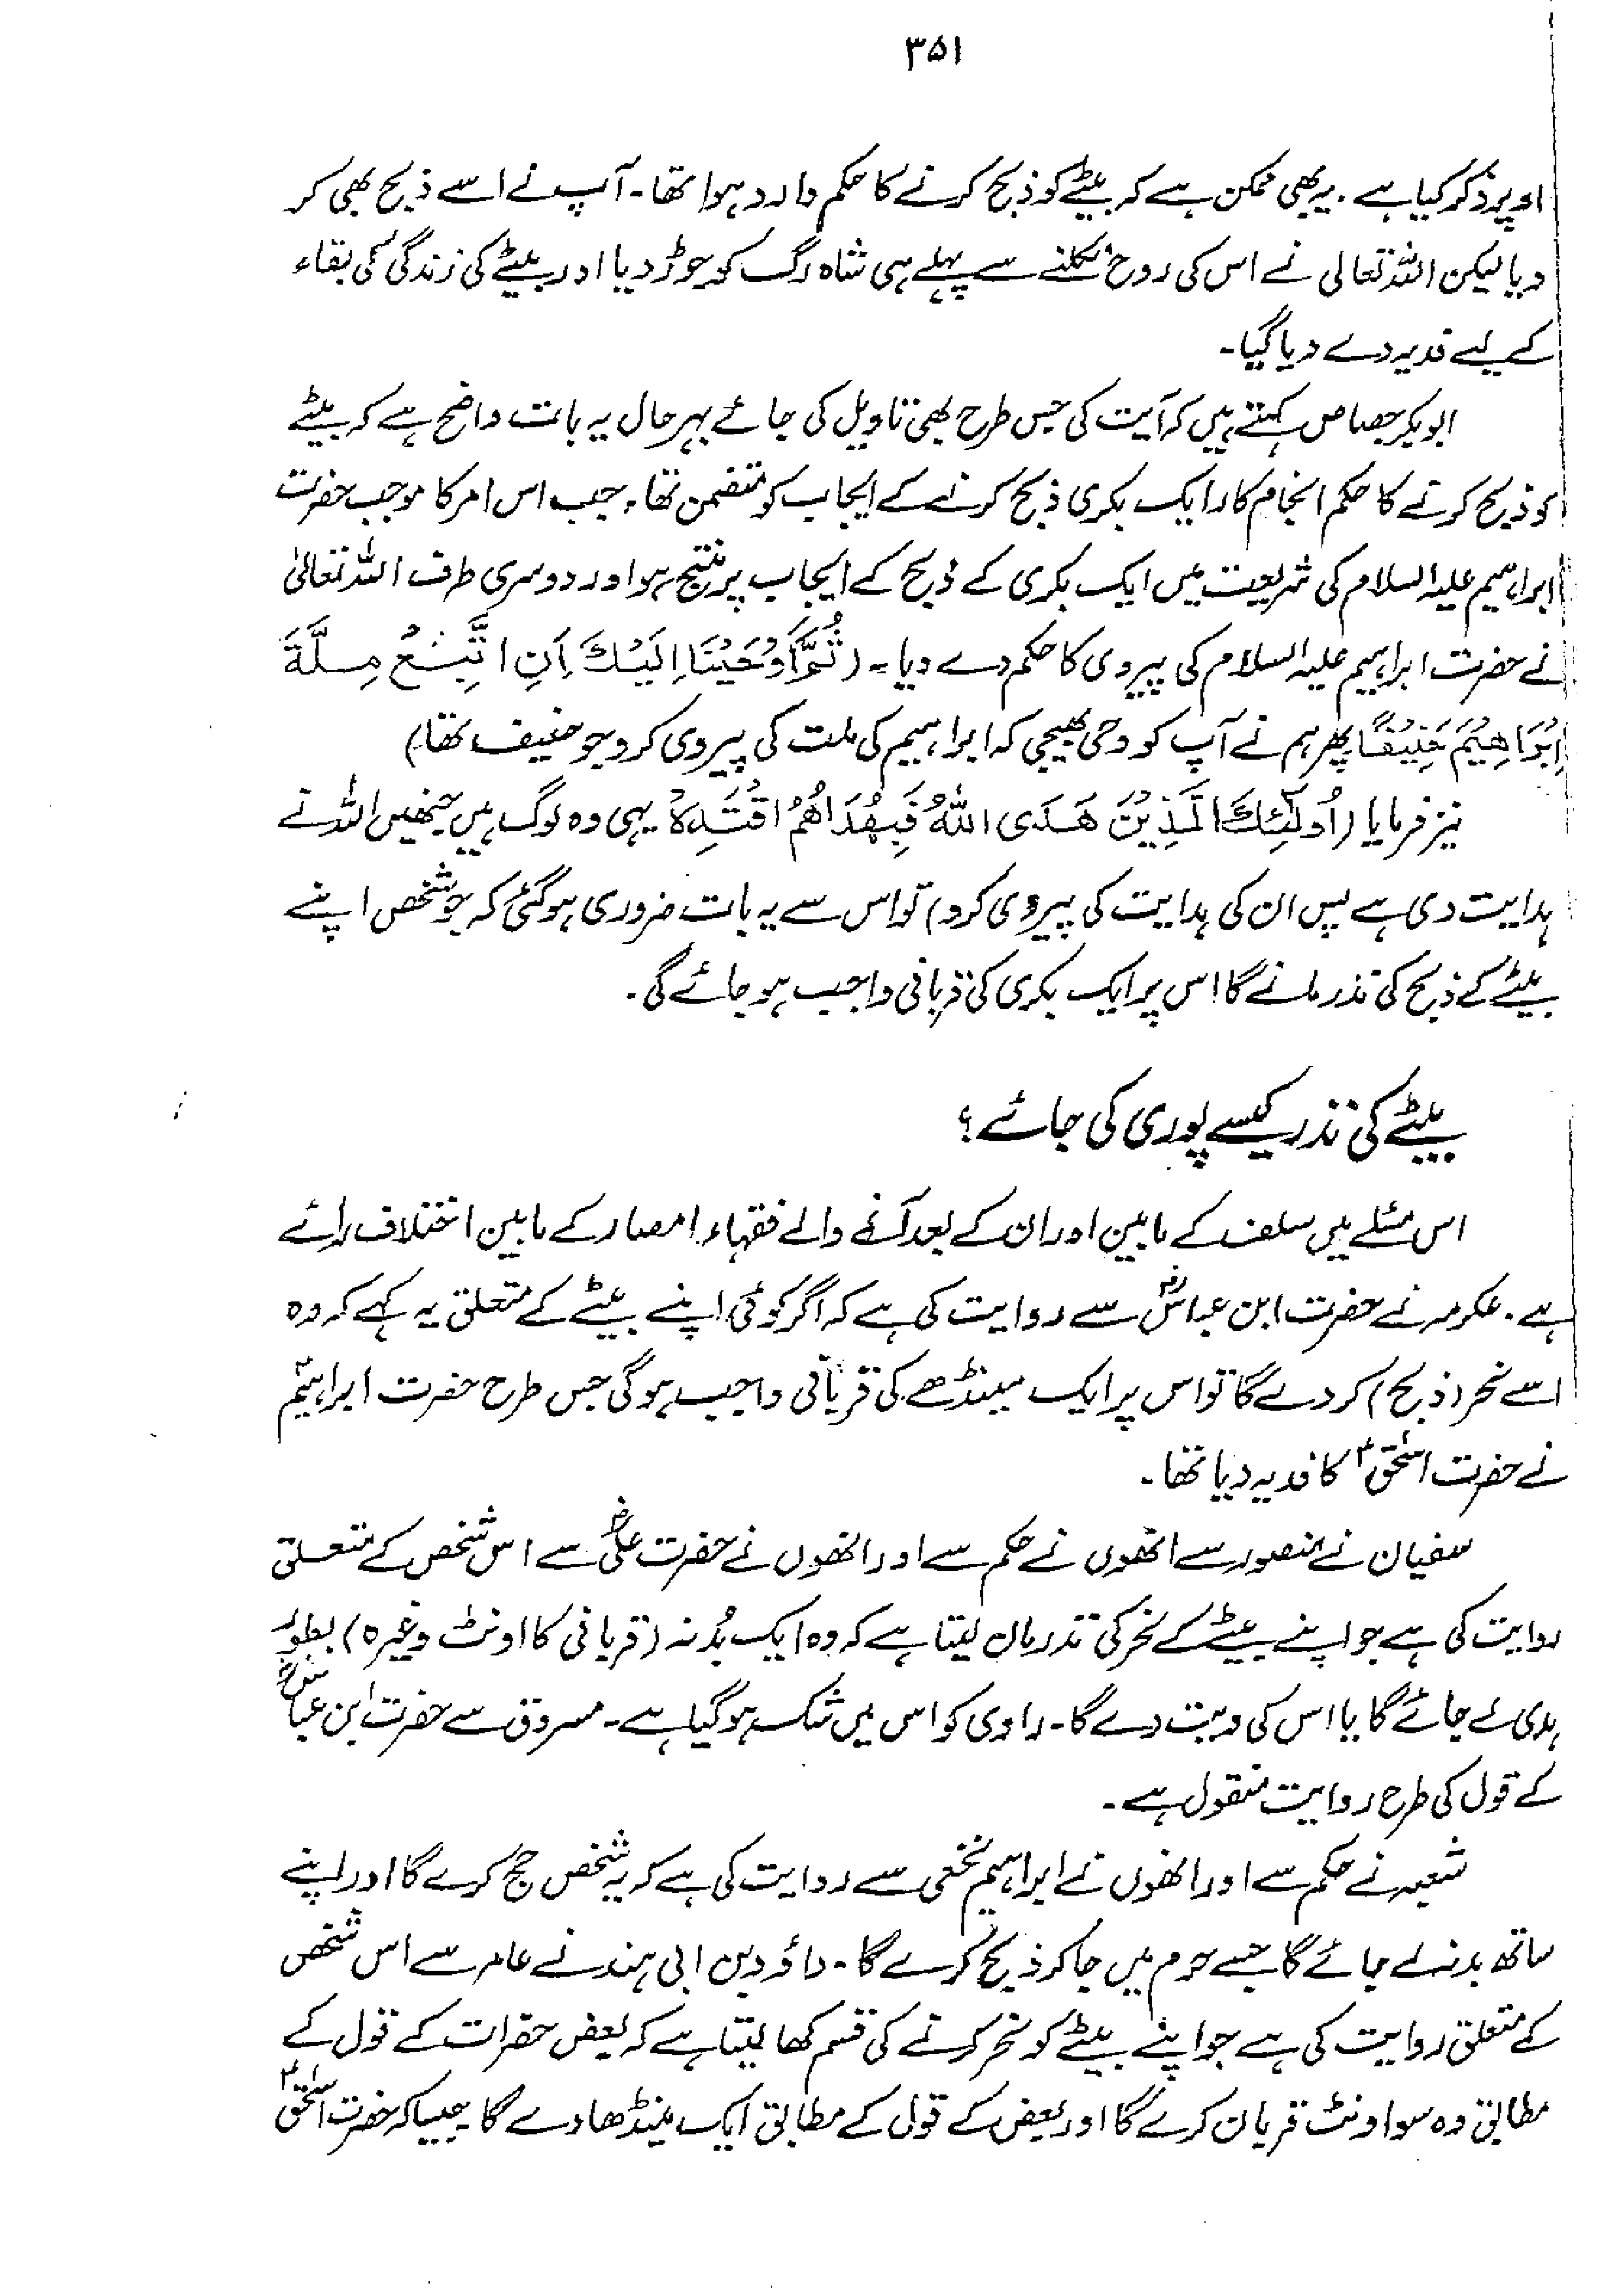 ۳۵۱
اوپر ذکر کیا ہے۔ یہ بھی ممکن ہے کہ بیٹے کو ذبح کرنے کا حکم وارد ہوا تھا۔ آپ نے اسے ذبح بھی کر
دیا لیکن اللہ تعالی نے اس کی روح نکلنے سے پہلے ہی شاہ رگ کو جوڑ دیا اور بیٹے کی زندگی کی بقاء
کے لیے فدیہ دے دیا گیا۔
ابوبکر جصاص کہتے ہیں کہ آیت کی جس طرح بھی تاویل کی جائے بہرحال یہ بات واضح ہے کہ بیٹے
کو ذبح کرنے کا حکم انجام کار ایک بکری ذبح کرنے کے ایجاب کو متضمن تھا۔ جب اس امر کا موجب حضرت
ابراہیم علیہ السلام کی شریعت میں ایک بکری کے ذبح کے ایجاب پر منتج ہوا اور دوسری طرف اللہ تعالیٰ
نے حضرت ابراہیم علیہ السلام کی پیروی کا حکم دے دیا۔ (ثُمَّ اَوْحَیْنَا اِلَیْکَ اَنِ اتَّبِعْ مِلَّةَ
اِبْرَاهِیْمَ حَنِیْفًا پھر ہم نے آپ کو وحی بھیجی کہ ابراہیم کی ملت کی پیروی کرو جو حنیف تھا)
نیز فرمایا (اُولٰٓئِکَ الَّذِیْنَ هَدَی اللّٰهُ فَبِهُدَاهُمُ اقْتَدِهْ یہی وہ لوگ ہیں جنھیں اللہ نے
ہدایت دی ہے پس ان کی ہدایت کی پیروی کرو) تو اس سے یہ بات ضروری ہو گئی کہ جو شخص اپنے
بیٹے کے ذبح کی نذر مانے گا اس پر ایک بکری کی قربانی واجب ہو جائے گی۔
بیٹے کی نذر کیسے پوری کی جائے؟
اس مسئلے میں سلف کے مابین اور ان کے بعد آنے والے فقہاء امصار کے مابین اختلاف رائے
ہے۔ عکرمہ نے حضرت ابن عباسؓ سے روایت کی ہے کہ اگر کوئی اپنے بیٹے کے متعلق یہ کہے کہ وہ
اسے نحر (ذبح) کر دے گا تو اس پر ایک مینڈھے کی قربانی واجب ہوگی جس طرح حضرت ابراہیمؑ
نے حضرت اسحٰقؑ کا فدیہ دیا تھا۔
سفیان نے منصور سے انھوں نے حکم سے اور انھوں نے حضرت علیؓ سے اس شخص کے متعلق
روایت کی ہے جو اپنے بیٹے کے نحر کی نذر مان لیتا ہے کہ وہ ایک بُدنہ (قربانی کا اونٹ وغیرہ) بطور
ہدی لے جائے گا یا اس کی دیت دے گا۔ راوی کو اس میں شک ہو گیا ہے۔ مسروق سے حضرت ابن عباسؓ
کے قول کی طرح روایت منقول ہے۔
شعبہ نے حکم سے اور انھوں نے ابراہیم نخعی سے روایت کی ہے کہ یہ شخص حج کرے گا اور اپنے
ساتھ بدنہ لے جائے گا جسے حرم میں جا کر ذبح کرے گا۔ داؤد بن ابی ہند نے عامر سے اس شخص
کے متعلق روایت کی ہے جو اپنے بیٹے کو نحر کرنے کی قسم کھا لیتا ہے کہ بعض حضرات کے قول کے
مطابق وہ سو اونٹ قربان کرے گا اور بعض کے قول کے مطابق ایک مینڈھا دے گا جیسا کہ حضرت اسحٰقؑ